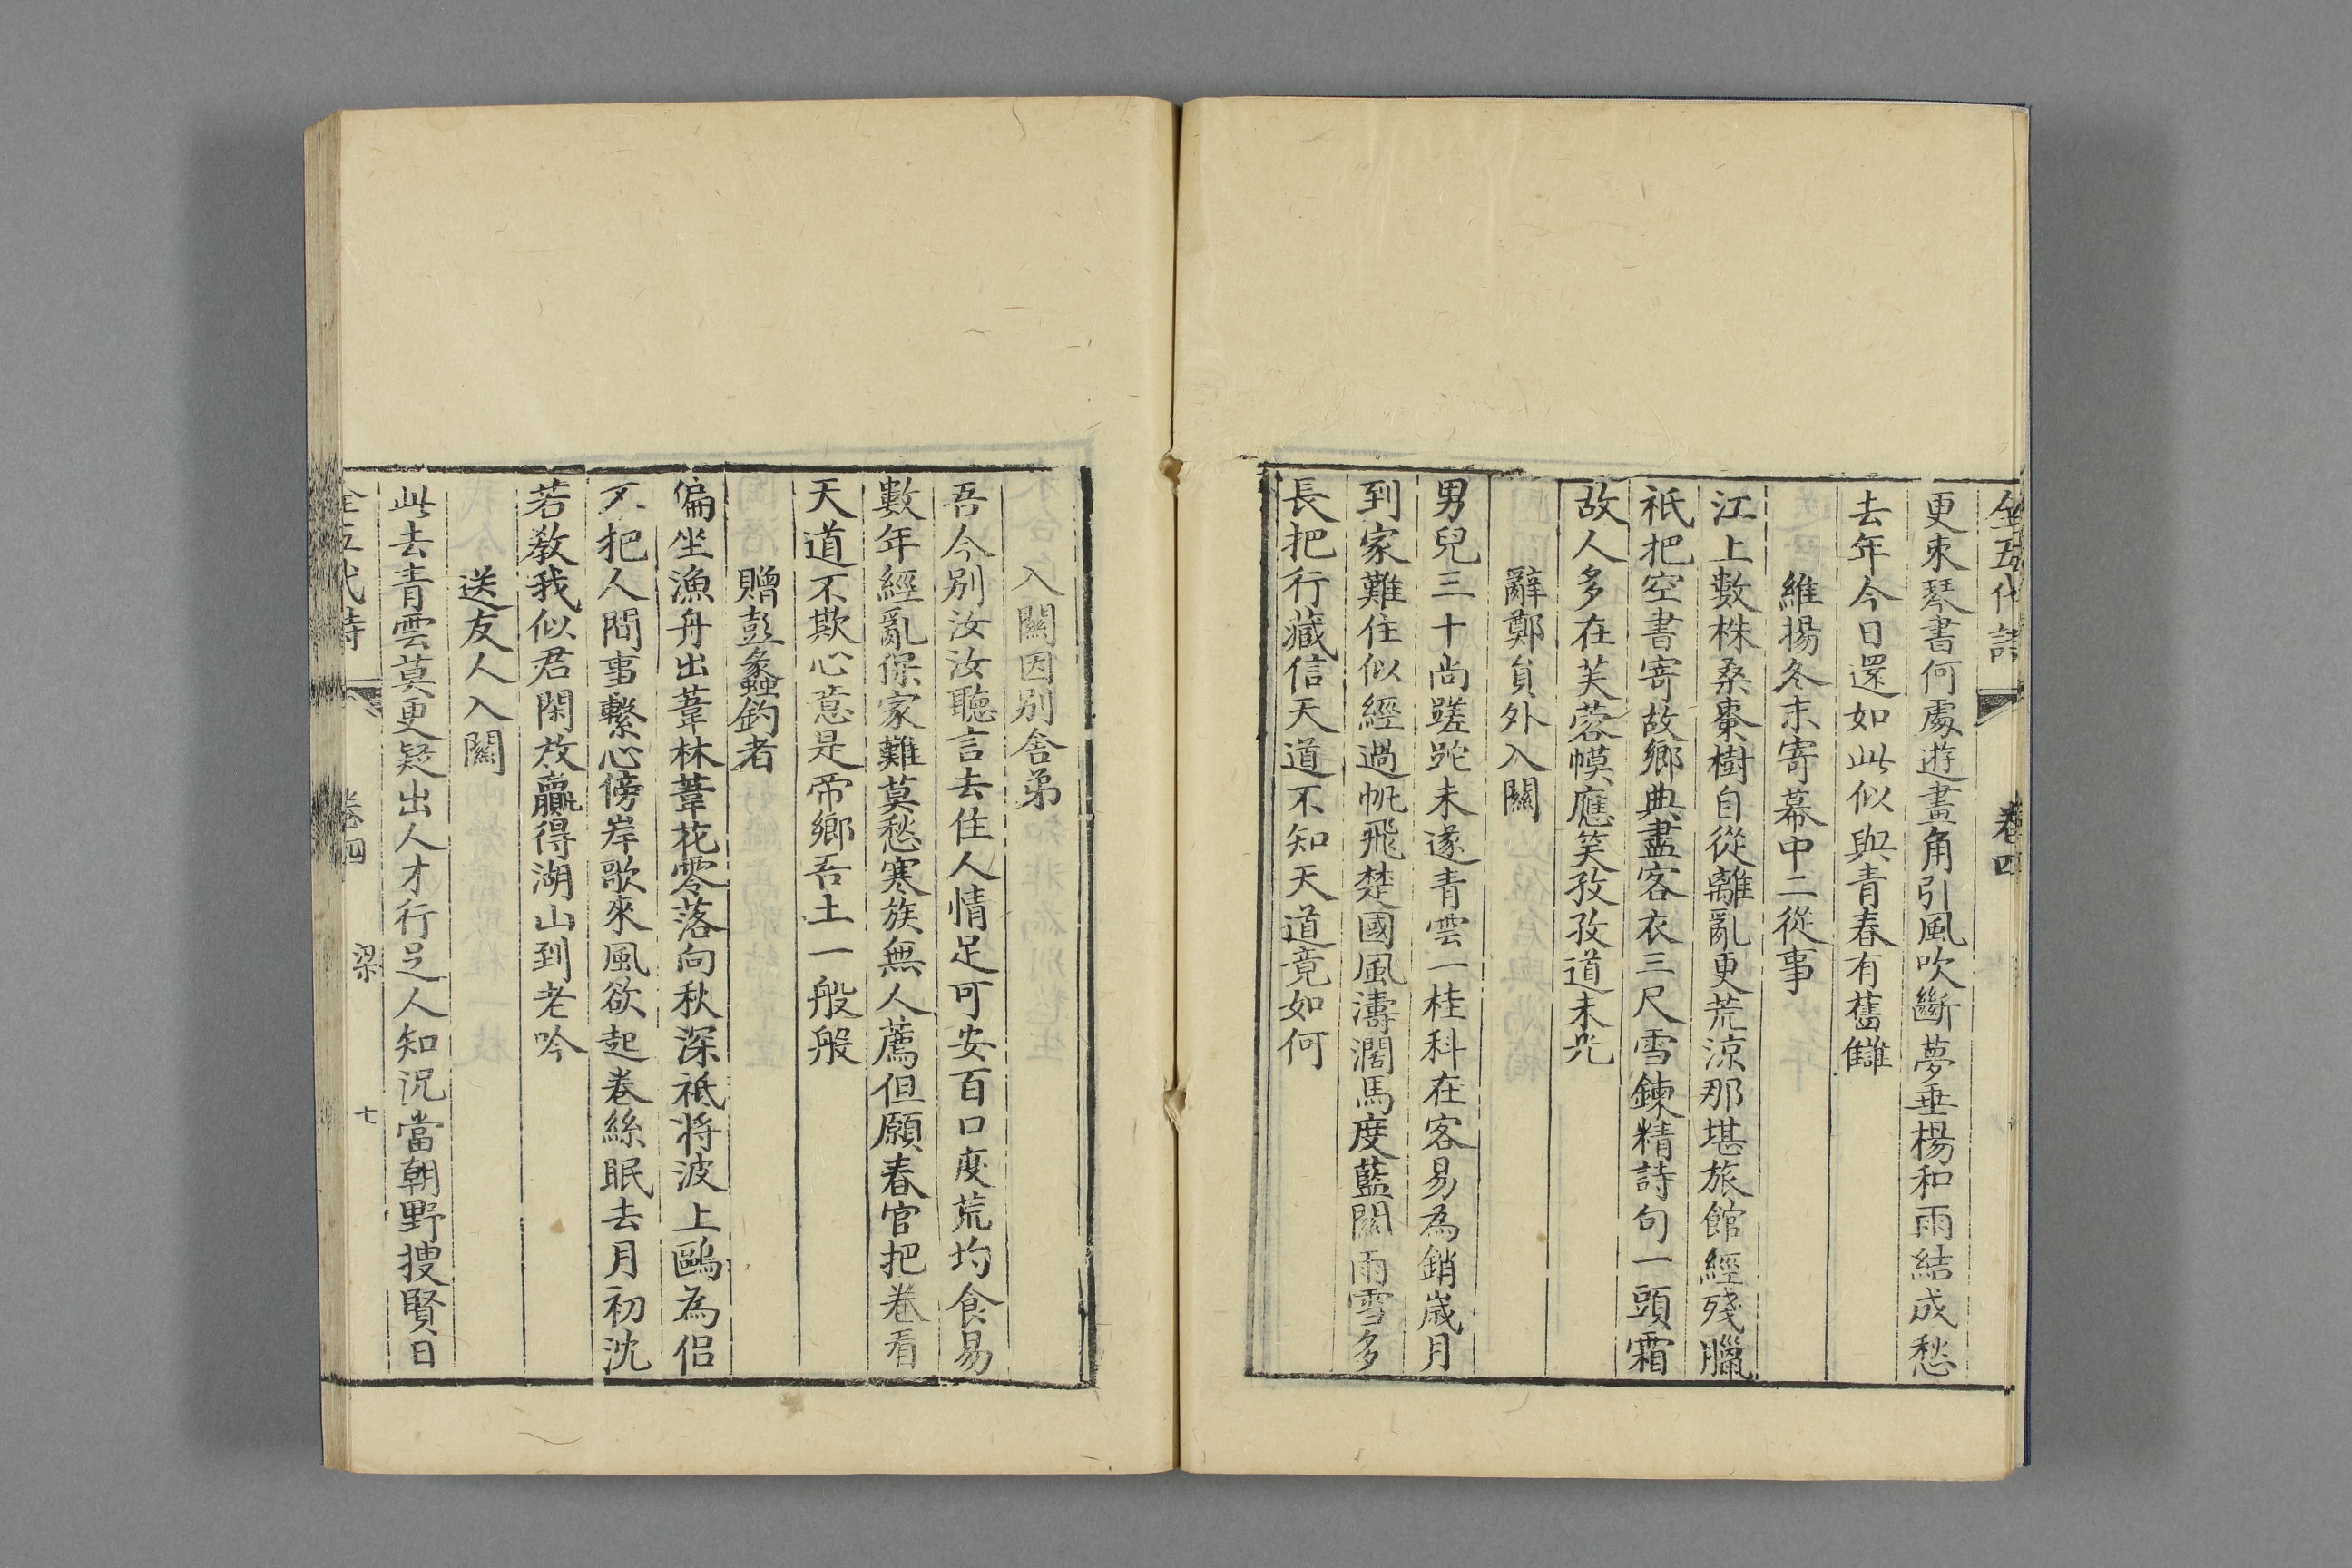 全五代詩 卷四
更來琴書何處遊畫角引風吹斷夢垂楊和雨結成愁
去年今日還如此似與青春有舊讎
維揚冬末寄幕中二從事
江上數株桑棗樹自從離亂更荒涼那堪旅館經殘臘
祇把空書寄故鄉典盡客衣三尺雪鍊精詩句一頭霜
故人多在芙蓉幕應笑孜孜道未光
辭鄭負外入關
男兒三十尚蹉跎未遂青雲一桂科在客易為銷歲月
到家難住似經過帆飛楚國風濤濶馬度藍關雨雪多
長把行藏信天道不知天道竟如何
入關因別舍弟
吾今別汝汝聽言去住人情足可安百口度荒均食易
數年經亂保家難莫愁寒族無人薦但願春官把卷看
天道不欺心意是帝鄉吾土一般般
贈彭蠡釣者
偏坐漁舟出葦林葦花零落向秋深祇將波上鷗為侶
不把人間事繫心傍岸歌來風欲起卷絲眠去月初沈
若教我似君閑放贏得湖山到老吟
送友人入關
此去青雲莫更疑出人才行足人知況當朝野搜賢日
全五代詩 卷四 梁 七